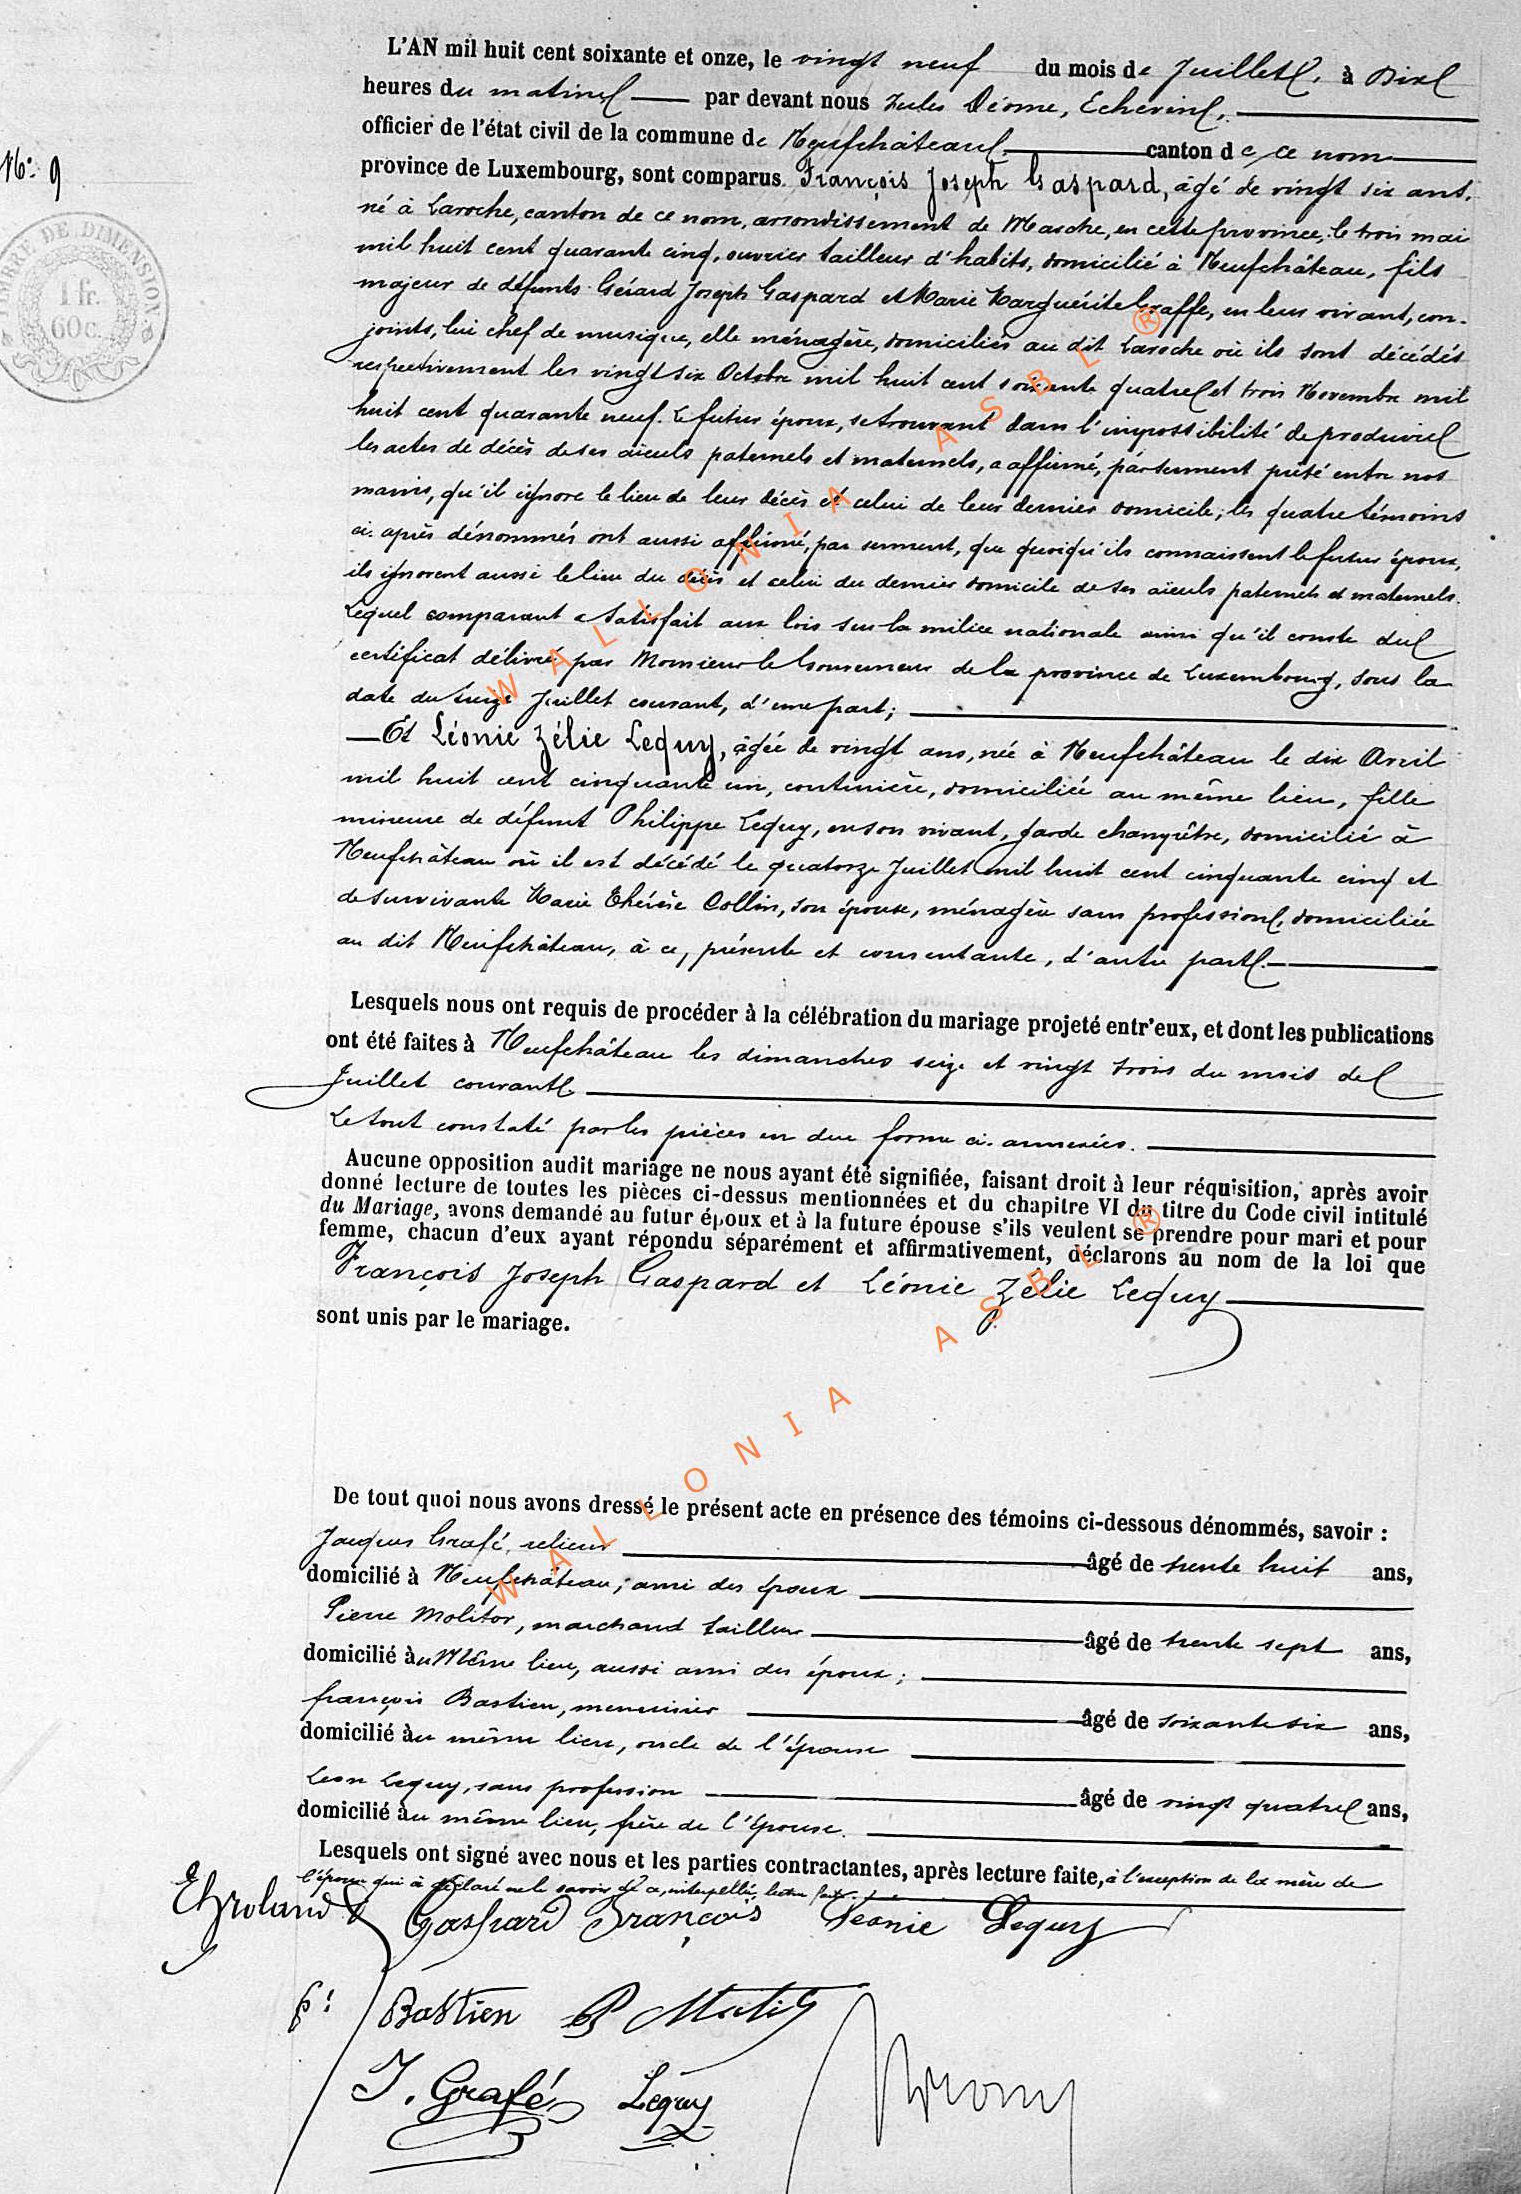 L'AN mil huit cent soixante et onze, le vingt neuf du mois de Juillet, à Dix
heures du matin par devant nous Jules Déome, Echevin,
officier de l'état civil de la commune de Neufchâteau canton de ce nom
N° 9
province de Luxembourg, sont comparus François Joseph Gaspard, âgé de vingt six ans,
né à Laroche, canton de ce nom, arrondissement de Marche, en cette province, le trois mai
TIMBRE DE DIMENSION
1 fr.
60 c.
mil huit cent quarante cinq, ouvrier tailleur d'habits, domicilié à Neufchâteau, fils
majeur de défunts Gérard Joseph Gaspard et Marie Marguérite Graffe, en leur vivant, con-
joints, lui chef de musique, elle ménagère, domiciliés au dit Laroche où ils sont décédés
respectivement les vingt six Octobre mil huit cent soixante quatre et trois Novembre mil
huit cent quarante neuf. Le futur époux, se trouvant dans l'impossibilité de produire
les actes de décès de ses aïeuls paternels et maternels, a affirmé, par serment prêté entre nos
mains, qu'il ignore le lieu de leur décès et celui de leur dernier domicile; les quatre témoins
ci-après dénommés ont aussi affirmé, par serment, que quoiqu'ils connaissent le futur époux,
ils ignorent aussi le lieu du décès et celui du dernier domicile de ses aïeuls paternels et maternels.
Lequel comparant a satisfait aux lois sur la milice nationale ainsi qu'il conste du
certificat délivré par Monsieur le Gouverneur de la province de Luxembourg, sous la
date du seize Juillet courant, d'une part;
Et Léonie Zélie Lequy, âgée de vingt ans, née à Neufchâteau le dix Avril
mil huit cent cinquante un, couturière, domiciliée au même lieu, fille
mineure de défunt Philippe Lequy, en son vivant, garde champêtre, domicilié à
Neufchâteau où il est décédé le quatorze Juillet mil huit cent cinquante cinq et
de survivante Marie Thérèse Collin, son épouse, ménagère sans profession, domiciliée
au dit Neufchâteau, à ce, présente et consentante, d'autre part.
Lesquels nous ont requis de procéder à la célébration du mariage projeté entr'eux, et dont les publications
ont été faites à Neufchâteau les dimanches seize et vingt trois du mois de
Juillet courant.
Le tout constaté par les pièces en due forme ci-annexées.
Aucune opposition audit mariage ne nous ayant été signifiée, faisant droit à leur réquisition, après avoir
donné lecture de toutes les pièces ci-dessus mentionnées et du chapitre VI du titre du Code civil intitulé
du Mariage, avons demandé au futur époux et à la future épouse s'ils veulent se prendre pour mari et pour
femme, chacun d'eux ayant répondu séparément et affirmativement, déclarons au nom de la loi que
François Joseph Gaspard et Léonie Zélie Lequy
sont unis par le mariage.
De tout quoi nous avons dressé le présent acte en présence des témoins ci-dessous dénommés, savoir :
Jacques Grafé, relieur âgé de trente huit ans,
domicilié à Neufchâteau, ami des époux
Pierre Molitor, marchand tailleur âgé de trente sept ans,
domicilié au Même lieu, aussi ami des époux;
françois Bastien, menuisier âgé de soixante six ans,
domicilié au même lieu, oncle de l'épouse
Léon Lequy, sans profession âgé de vingt quatre ans,
domicilié au même lieu, frère de l'épouse.
Lesquels ont signé avec nous et les parties contractantes, après lecture faite, à l'exception de la mère de
l'épouse qui a déclaré ne le savoir de ce, interpellée, lecture faite.
Gaspard François Léonie Lequy
Bastien P Molitor
J. Grafé Lequy
WALLONIA ASBL ®
WALLONIA ASBL ®